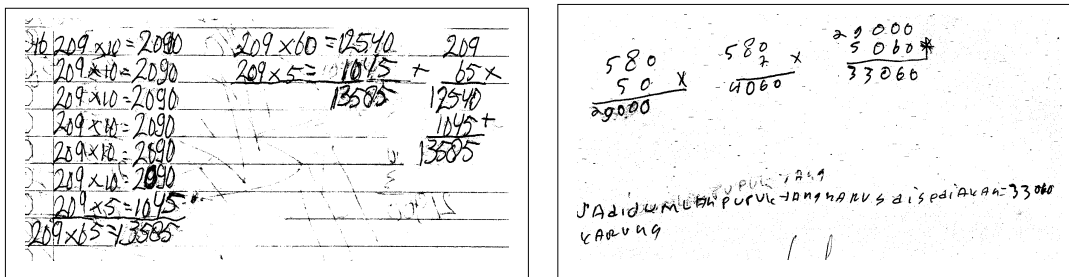 346 209 x 10 = 2090
209 x 10 = 2090
209 x 10 = 2090
209 x 10 = 2090
209 x 10 = 2090
209 x 10 = 2090
209 x 5 = 1045
209 x 65 = 13585
209 x 60 = 12540
209 x 5 = 1045 +
13585
209
65 x
12540
1045 +
13585
580
50 x
29000
580
7 x
4060
29000
5060
33060
JAdi JUMLAH PUPUK YANG HARUS disediAkAn = 33060
KARUNG